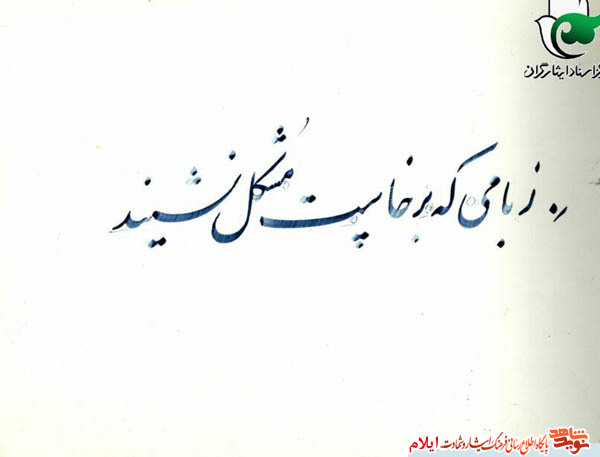 مرکز اسناد ایثارگران
ز بامی که برخاست مشکل نشیند
نوید شاهد پایگاه اطلاع رسانی فرهنگ ایثار و شهادت ایلام